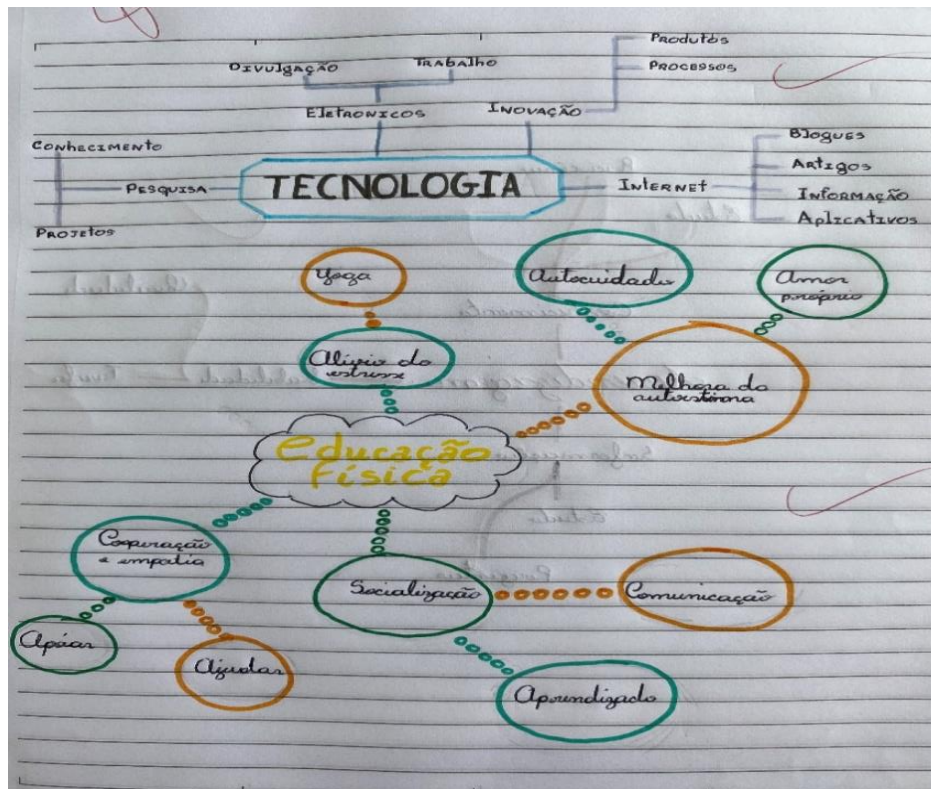 PRODUTOS
DIVULGAÇÃO
TRABALHO
PROCESSOS
ELETRONICOS
INOVAÇÃO
BLOGUES
CONHECIMENTO
ARTIGOS
PESQUISA
TECNOLOGIA
INTERNET
INFORMAÇÃO
APLICATIVOS
PROJETOS
Yoga
Autocuidado
Amor
próprio
Alívio do
estresse
Melhora da
autoestima
educação
física
Cooperação
e empatia
Socialização
Comunicação
Apoiar
Ajudar
Aprendizado